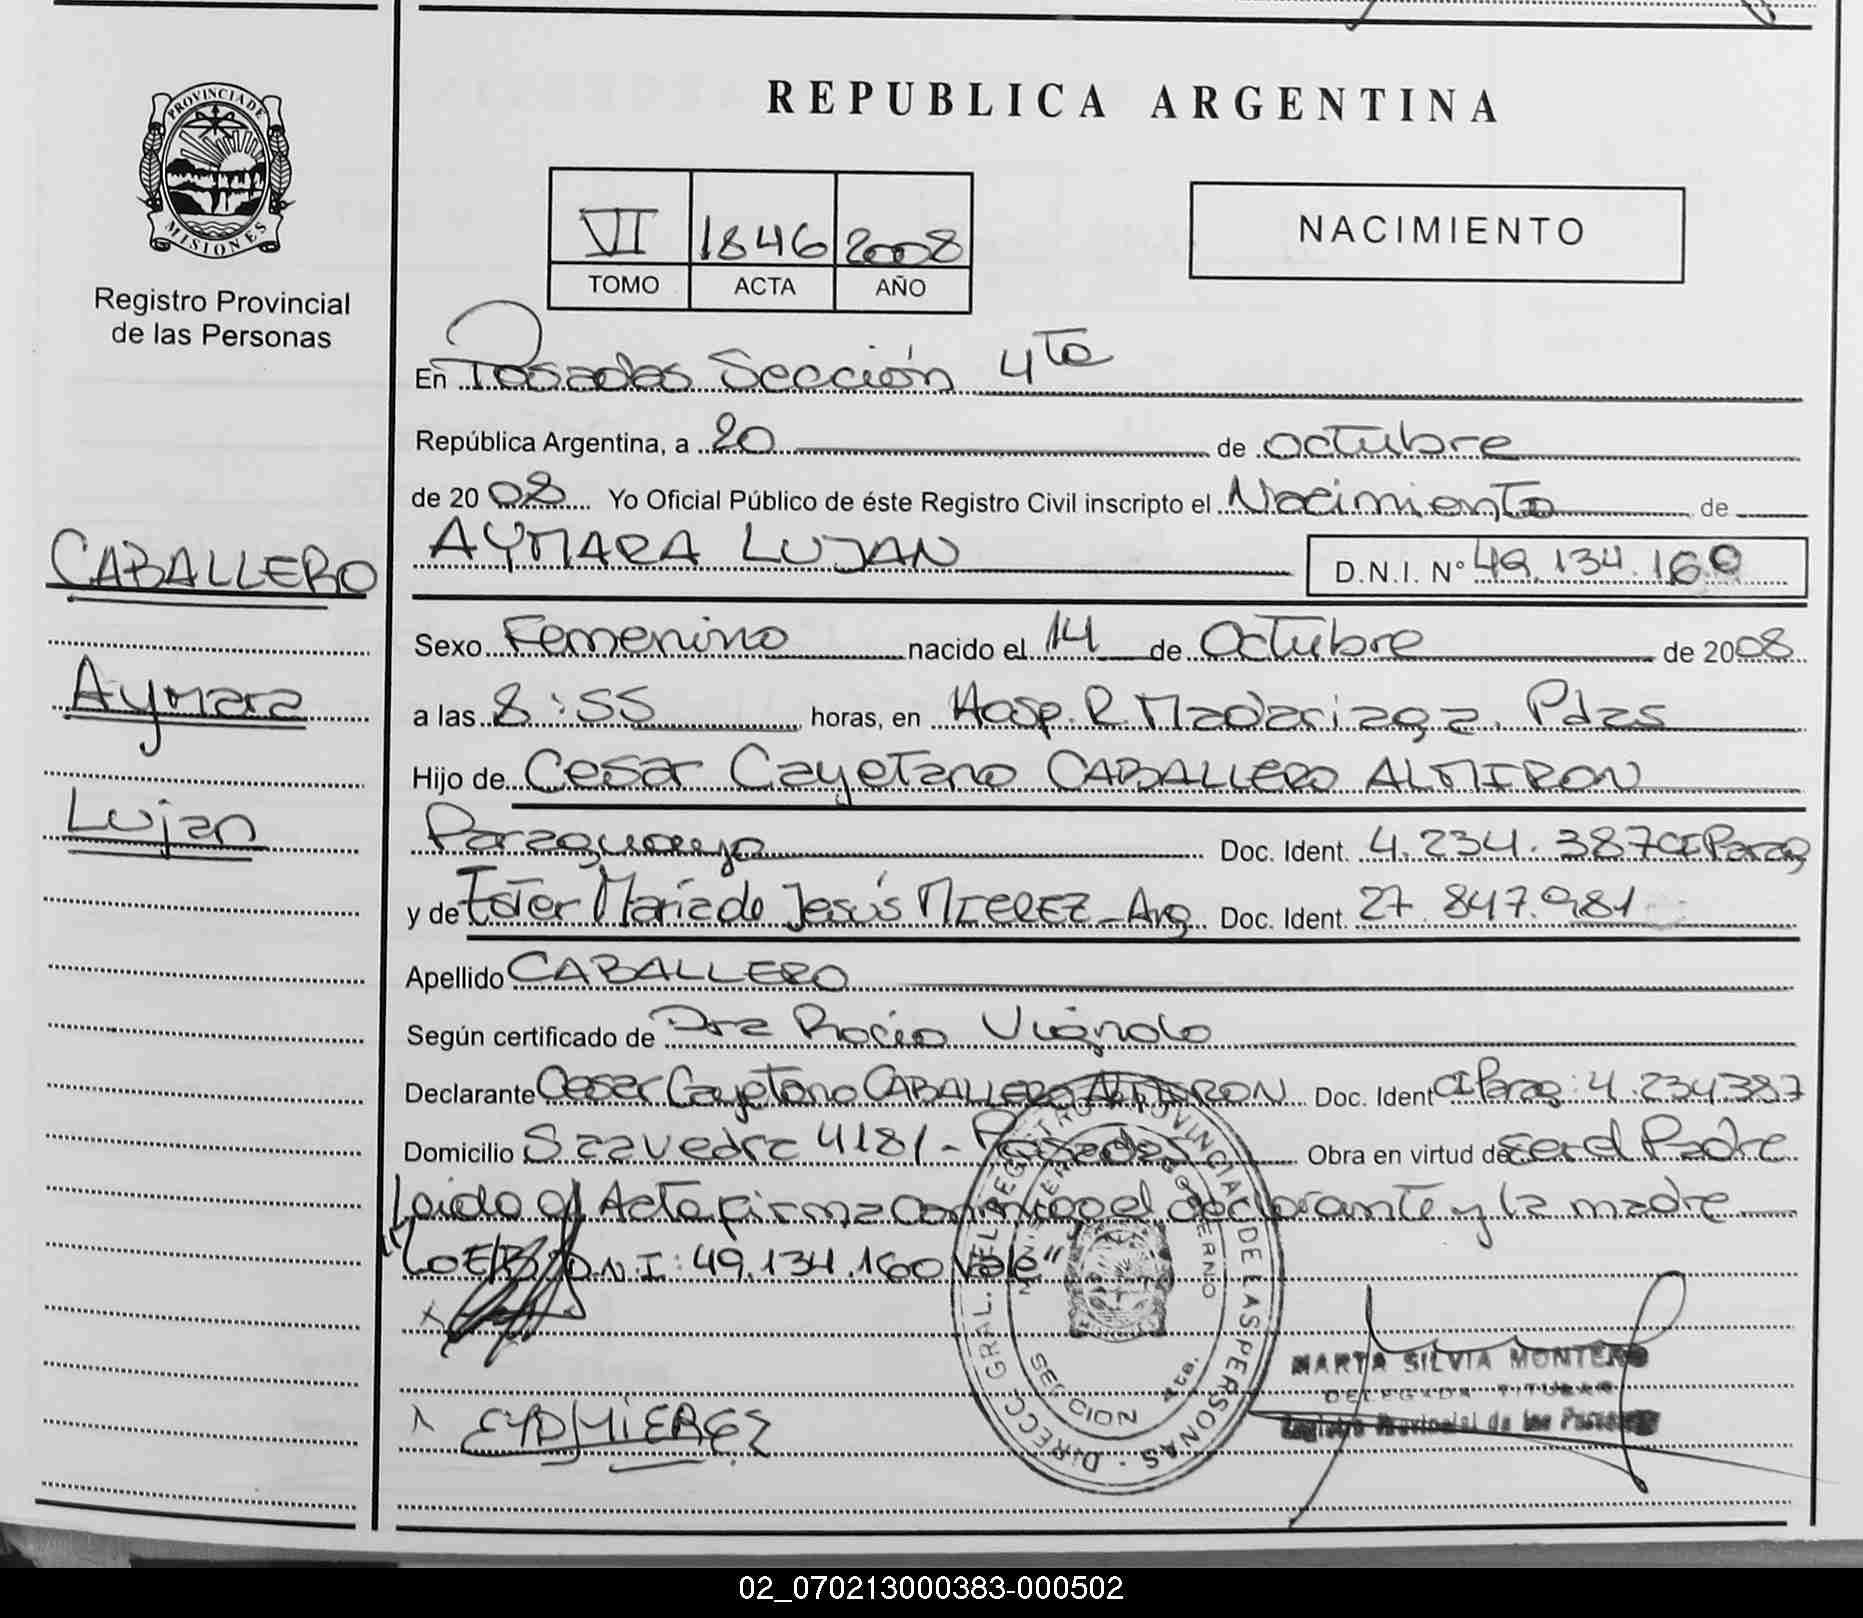 REPUBLICA ARGENTINA
PROVINCIA DE MISIONES
Registro Provincial
de las Personas
VII 1846 2008
TOMO ACTA AÑO
NACIMIENTO
En Posadas Sección 4ta
República Argentina, a 20 de octubre
de 2008 Yo Oficial Público de éste Registro Civil inscripto el Nacimiento de
AYMARA LUJAN D.N.I. N° 49.134.160
CABALLERO
Aymara
Lujan
Sexo Femenino nacido el 14 de Octubre de 2008
a las 8:55 horas, en Hosp. R. Madariaga. Pdas
Hijo de Cesar Cayetano CABALLERO ALMIRON
Paraguayo Doc. Ident. 4.234.387 CI Parag
y de Ester María de Jesús MIEREZ - Arg Doc. Ident. 27.847.981
Apellido CABALLERO
Según certificado de Dra Rocío
Declarante Cesar Cayetano CABALLERO ALMIRON Doc. Ident CI Parag: 4.234387
Domicilio Saavedra 4181 - Posadas Obra en virtud de ser el Padre
Leido el Acta firma conmigo el declarante y la madre
D.N.I: 49.134.160 Vale"
DIRECC. GRAL. DEL REGISTRO PROVINCIAL DE LAS PERSONAS
MINISTERIO DE GOBIERNO
SECCION 4ta.
MARTA SILVIA MONTERO
DELEGADA TITULAR
Registro Provincial de las Personas
02_070213000383-000502